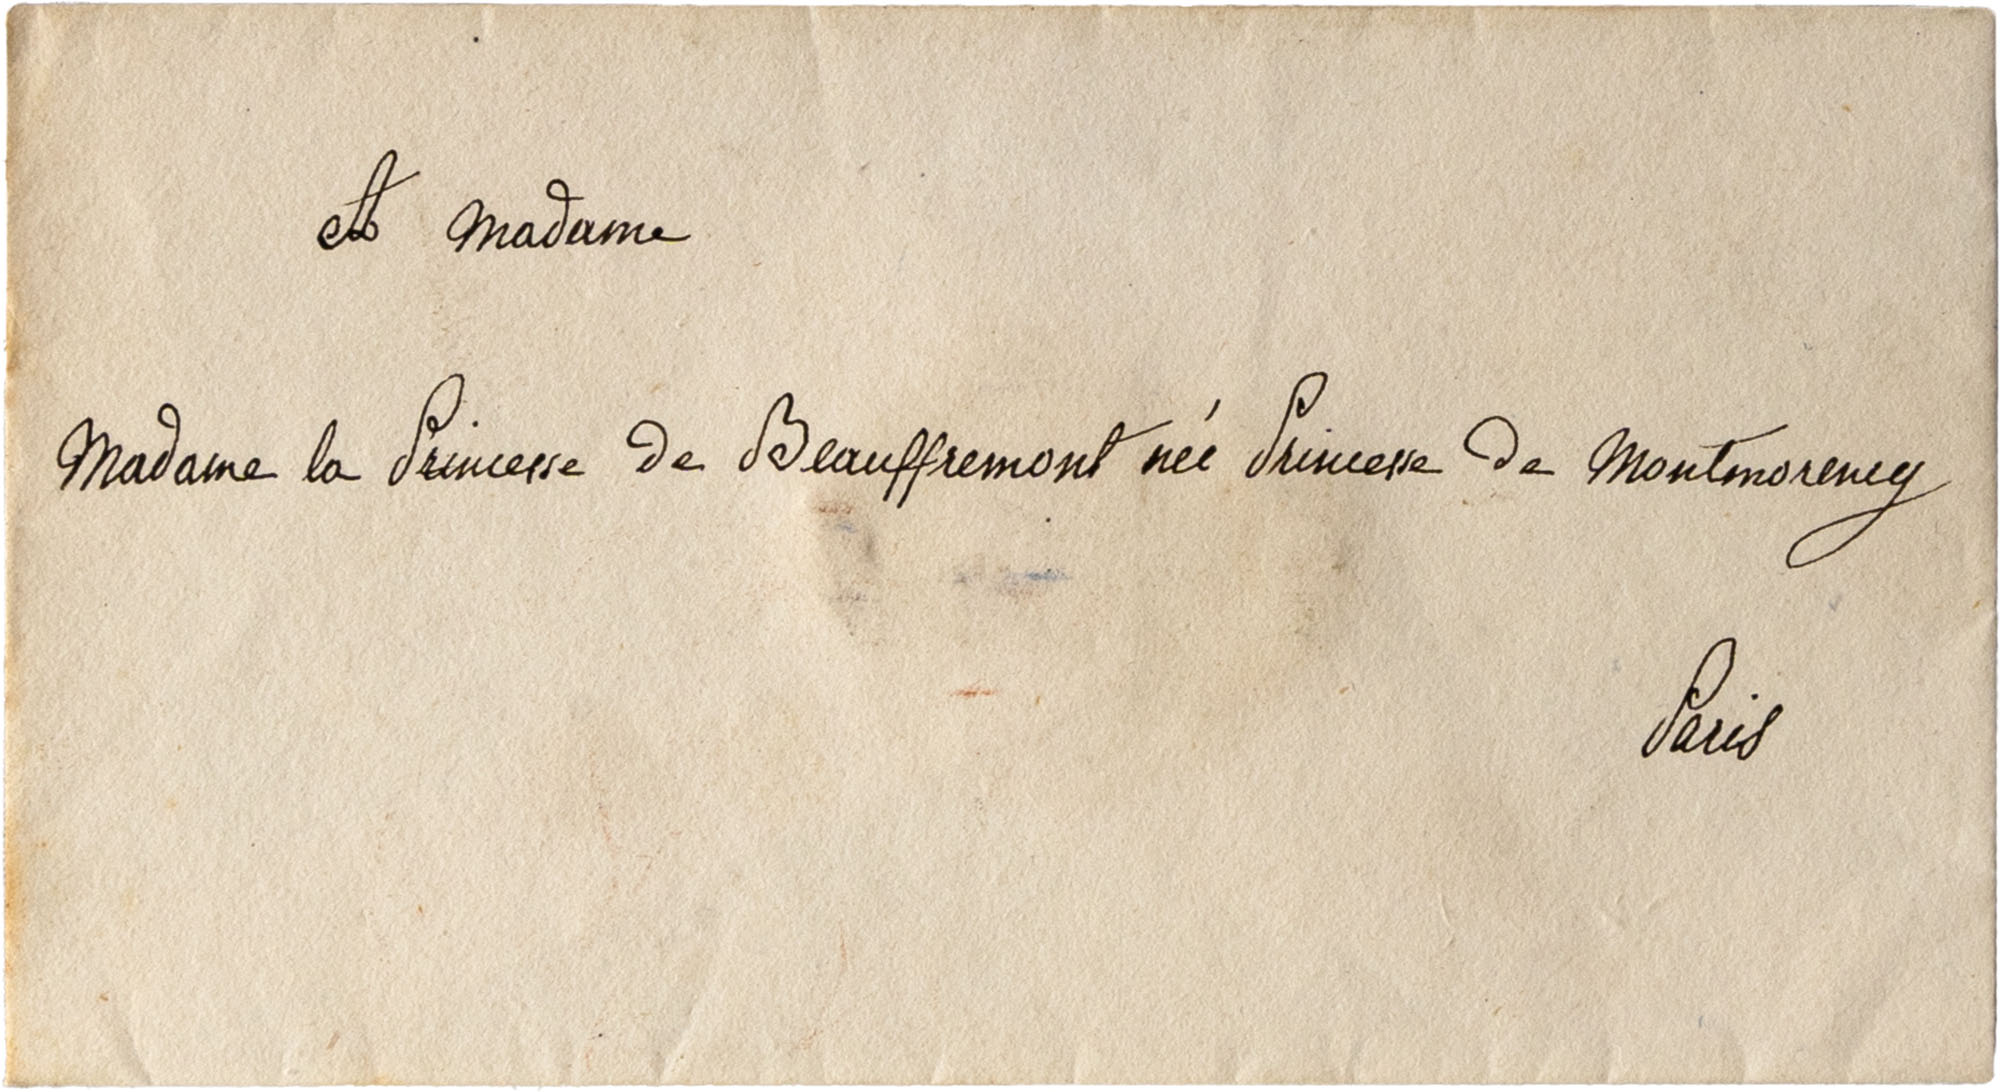 A Madame
Madame la Princesse de Beauffremont née Princesse de Montmorency
Paris